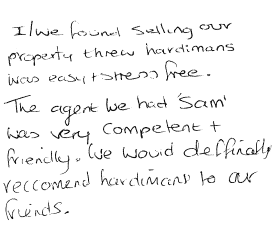 I/we found selling our
property threw hardimans
was easy + stress free.
The agent we had 'Sam'
was very competent +
friendly. We would deffinatly
reccomend hardimans to our
friends.